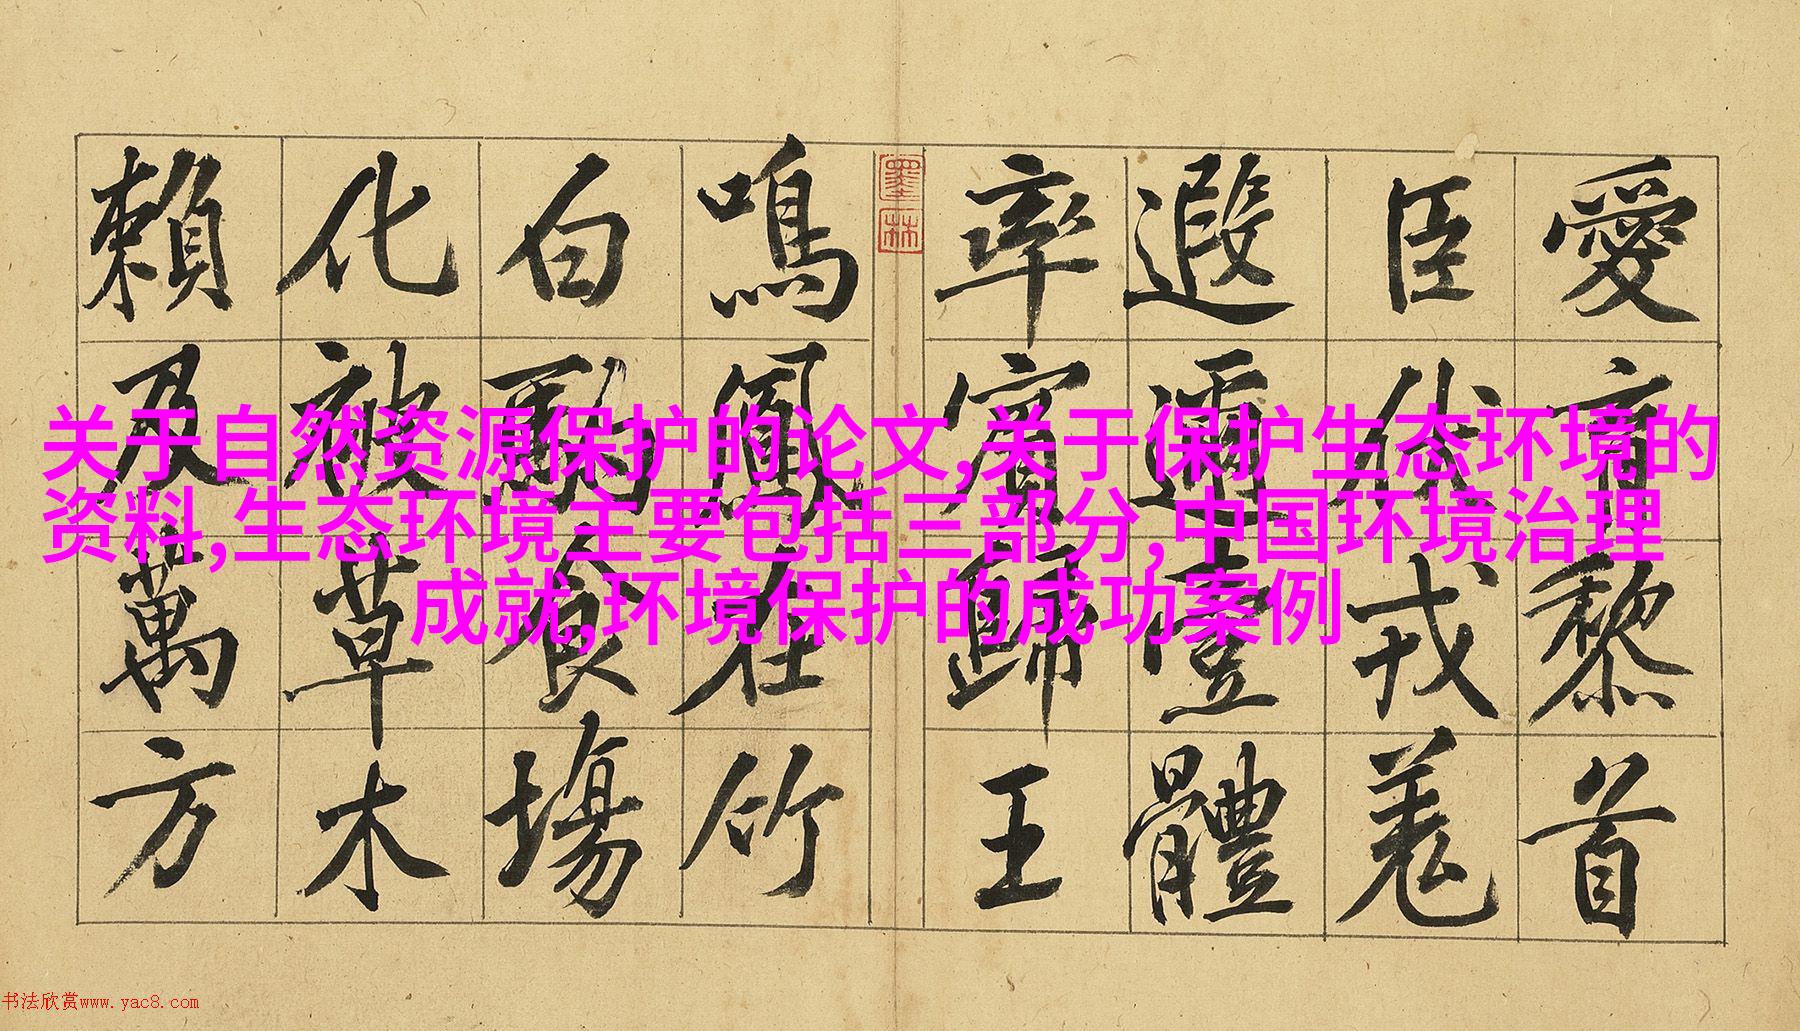 关于自然资源保护的论文,关于保护生态环境的
资料,生态环境主要包括三部分,中国环境治理
成就,环境保护的成功案例
愛育黎首
臣伏戎羌
遐邇壹體
率賓歸王
墨林
鳴鳳在竹
白駒食場
化被草木
賴及萬方
书法欣赏www.yac8.com